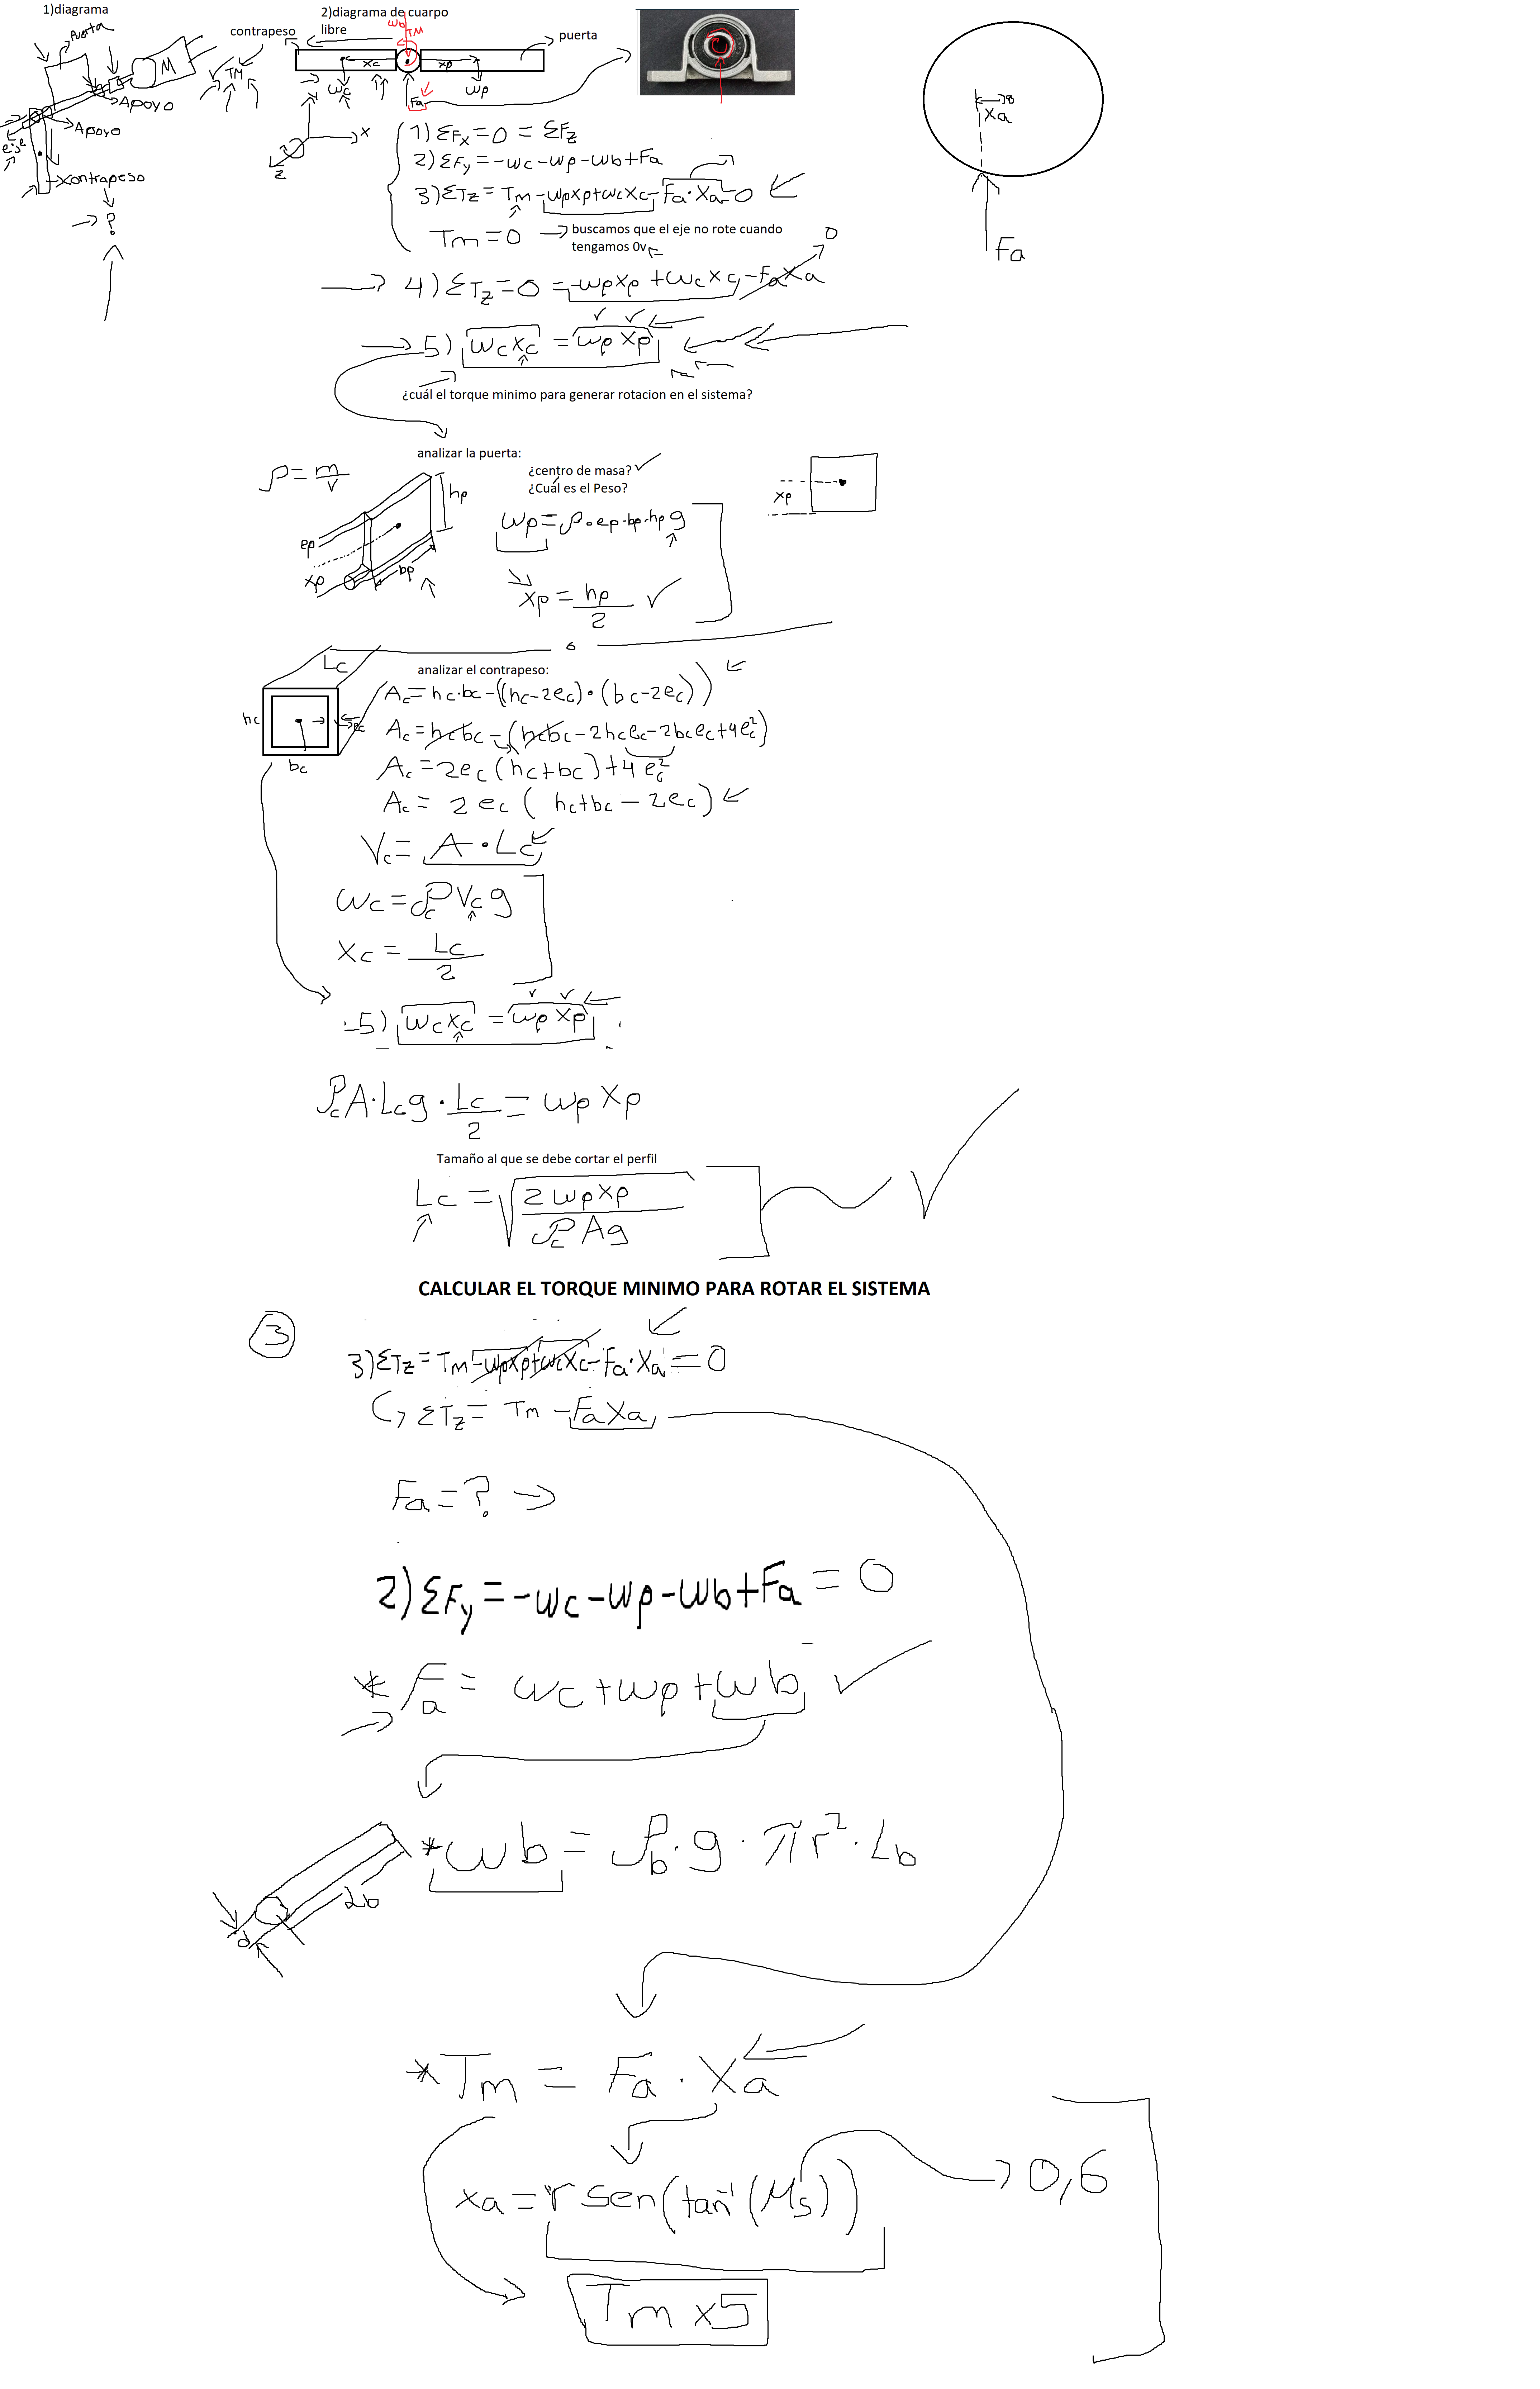 1)diagrama
puerta
M
TM
Apoyo
Apoyo
eje
contrapeso
?
2)diagrama de cuarpo
libre
contrapeso
wb
TM
puerta
xc
xp
wc
wp
Fa
Y
X
Z
Xa
Fa
1) ΣFx=0 = ΣFz
2) ΣFy=-wc-wp-wb+Fa
3) ΣTz= Tm-wpxp+wcXc-Fa·Xa=0
Tm=0
buscamos que el eje no rote cuando
tengamos 0v
4) ΣTz=0 =-wpxp +wcxc -FaXa
0
5) wcxc = wpxp
¿cuál el torque minimo para generar rotacion en el sistema?
analizar la puerta:
ρ=m/v
¿centro de masa?
¿Cuál es el Peso?
hp
ep
xp
bp
wp=ρ·ep·bp·hp g
xp=hp/2
xp
Lc
analizar el contrapeso:
hc
ec
bc
Ac=hc·bc-((hc-2ec)·(bc-2ec))
Ac=hcbc-(hcbc-2hcec-2bcec+4ec²)
Ac=2ec(hc+bc)+4ec²
Ac= 2ec( hc+bc-2ec)
Vc= A·Lc
wc=ρc Vc g
xc= Lc/2
5) wcxc = wpxp
ρcA·Lcg·Lc/2= wpxp
Tamaño al que se debe cortar el perfil
Lc=√(2wpxp/ρcAg)
CALCULAR EL TORQUE MINIMO PARA ROTAR EL SISTEMA
3
3) ΣTz= Tm-wpxp+wcXc-Fa·Xa=0
ΣTz= Tm -FaXa
Fa=?
2) ΣFy=-wc-wp-wb+Fa=0
* Fa= wc+wp+wb
*wb= ρb·g·πr²·Lb
Lb
d
*Tm= Fa·Xa
xa=r sen(tan⁻¹(μs))
0,6
Tm x5